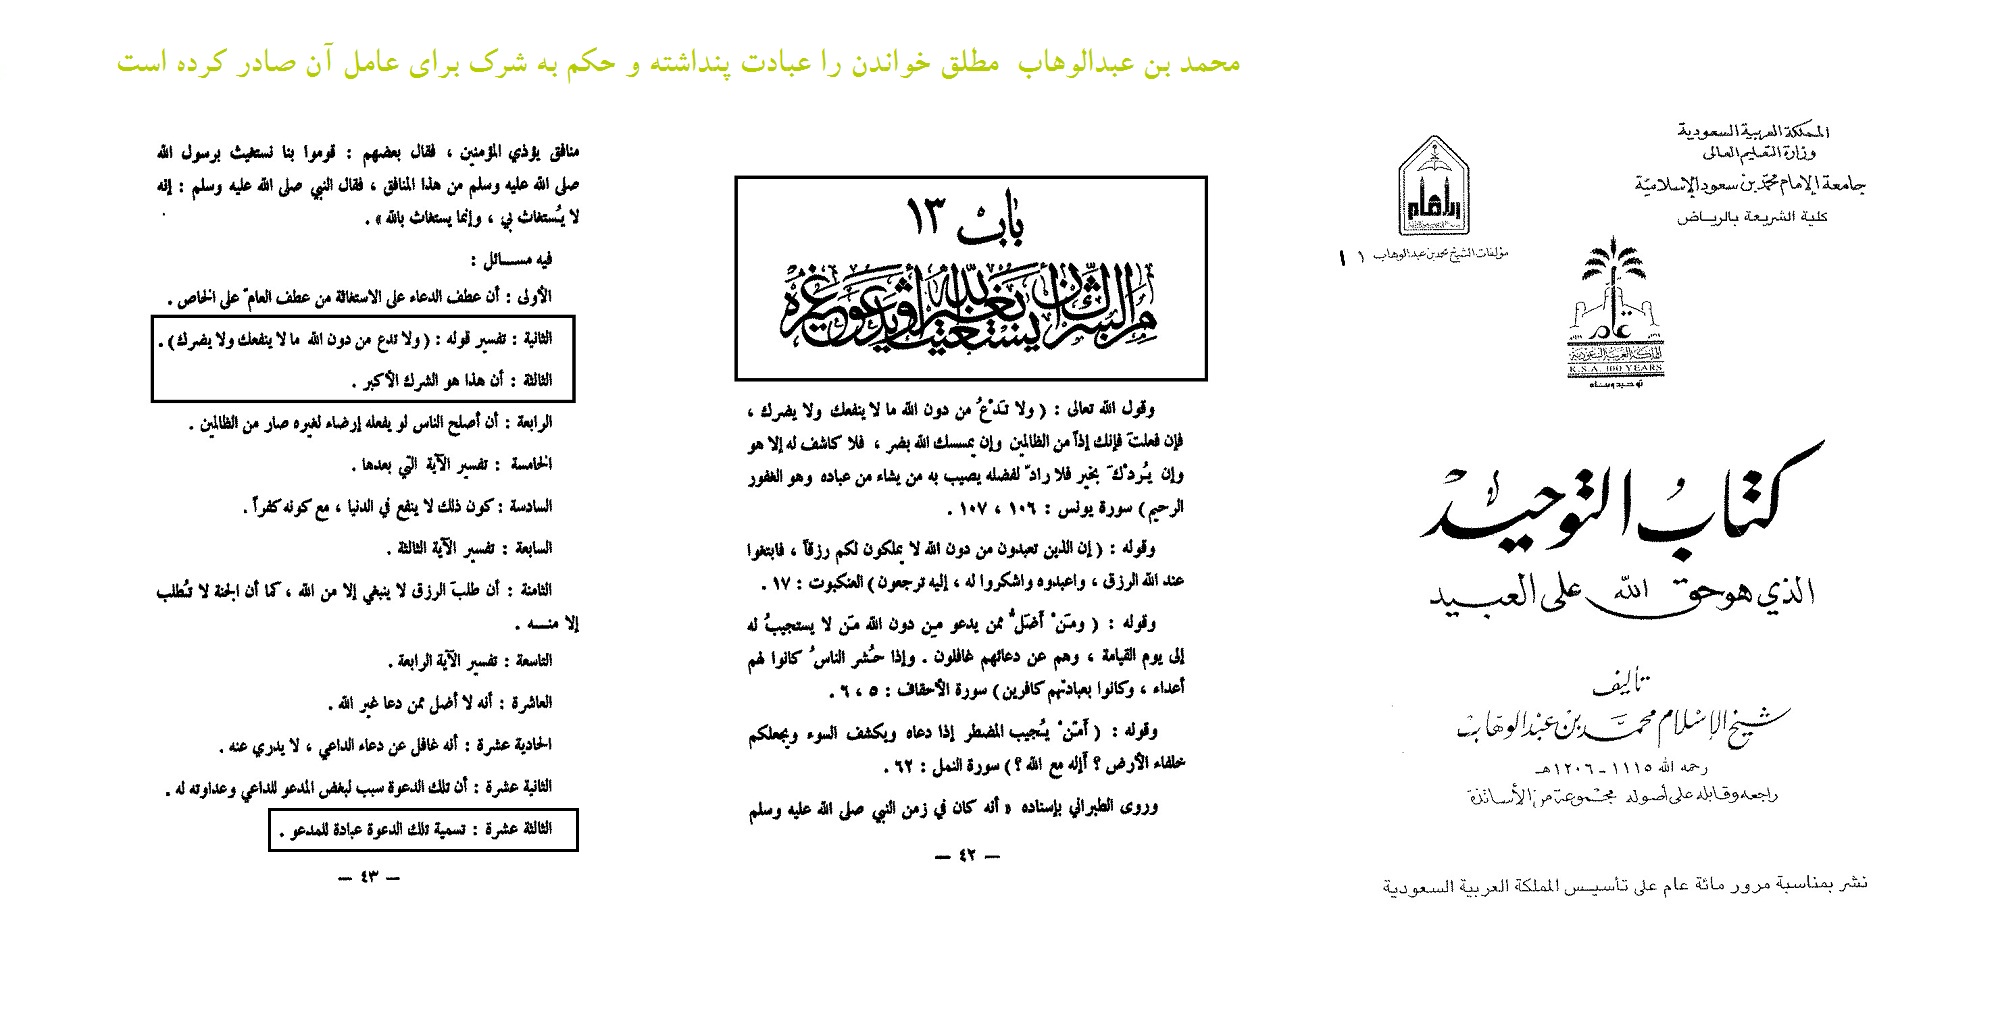 محمد بن عبدالوهاب مطلق خواندن را عبادت پنداشته و حکم به شرک برای عامل آن صادر کرده است
المملكة العربية السعودية
وزارة التعليم العالى
جامعة الإمام محمد بن سعود الإسلامية
كلية الشريعة بالرياض
مؤلفات الشيخ محمد بن عبد الوهاب ١
المملكة العربية السعودية
K.S.A. 100 YEARS
توحيد وبناء
كتاب التوحيد
الذي هو حق الله على العبيد
تأليف
شيخ الإسلام محمد بن عبد الوهاب
رحمه الله ١١١٥ - ١٢٠٦ هـ
راجعه وقابله على أصوله مجموعة من الأساتذة
نشر بمناسبة مرور مائة عام على تأسيس المملكة العربية السعودية
باب ١٣
من الشرك أن يستغيث بغير الله أو يدعو غيره
وقول الله تعالى : ( ولا تَدْعُ من دون الله ما لا ينفعك ولا يضرك ،
فإن فعلتَ فإنك إذاً من الظالمين وإن يمسسك الله بضر ، فلا كاشف له إلا هو
وإن يُردْكَ بخير فلا رادّ لفضله يصيب به من يشاء من عباده وهو الغفور
الرحيم ) سورة يونس : ١٠٦ ، ١٠٧ .
وقوله : ( إن الذين تعبدون من دون الله لا يملكون لكم رزقاً ، فابتغوا
عند الله الرزق ، واعبدوه واشكروا له ، إليه ترجعون ) العنكبوت : ١٧ .
وقوله : ( ومَنْ أضَلُّ ممن يدعو مِن دون الله مَن لا يستجيبُ له
إلى يوم القيامة ، وهم عن دعائهم غافلون . وإذا حُشر الناسُ كانوا لهم
أعداء ، وكانوا بعبادتهم كافرين ) سورة الأحقاف : ٥ ، ٦ .
وقوله : ( أمّنْ يُجيب المضطر إذا دعاه ويكشف السوء ويجعلكم
خلفاء الأرض ؟ أإله مع الله ؟ ) سورة النمل : ٦٢ .
وروى الطبراني بإسناده « أنه كان في زمن النبي صلى الله عليه وسلم
— ٤٢ —
منافق يؤذي المؤمنين ، فقال بعضهم : قوموا بنا نستغيث برسول الله
صلى الله عليه وسلم من هذا المنافق ، فقال النبي صلى الله عليه وسلم : إنه
لا يُستغاث بي ، وإنما يستغاث بالله » .
فيه مسائل :
الأولى : أن عطف الدعاء على الاستغاثة من عطف العامّ على الخاص .
الثانية : تفسير قوله : ( ولا تدع من دون الله ما لا ينفعك ولا يضرك ) .
الثالثة : أن هذا هو الشرك الأكبر .
الرابعة : أن أصلح الناس لو يفعله إرضاء لغيره صار من الظالمين .
الخامسة : تفسير الآية التي بعدها .
السادسة : كون ذلك لا ينفع في الدنيا ، مع كونه كفراً .
السابعة : تفسير الآية الثالثة .
الثامنة : أن طلبَ الرزق لا ينبغي إلا من الله ، كما أن الجنة لا تُطلب
إلا منه .
التاسعة : تفسير الآية الرابعة .
العاشرة : أنه لا أضل ممن دعا غير الله .
الحادية عشرة : أنه غافل عن دعاء الداعي ، لا يدري عنه .
الثانية عشرة : أن تلك الدعوة سبب لبغض المدعو للداعي وعداوته له .
الثالثة عشرة : تسمية تلك الدعوة عبادة للمدعو .
— ٤٣ —